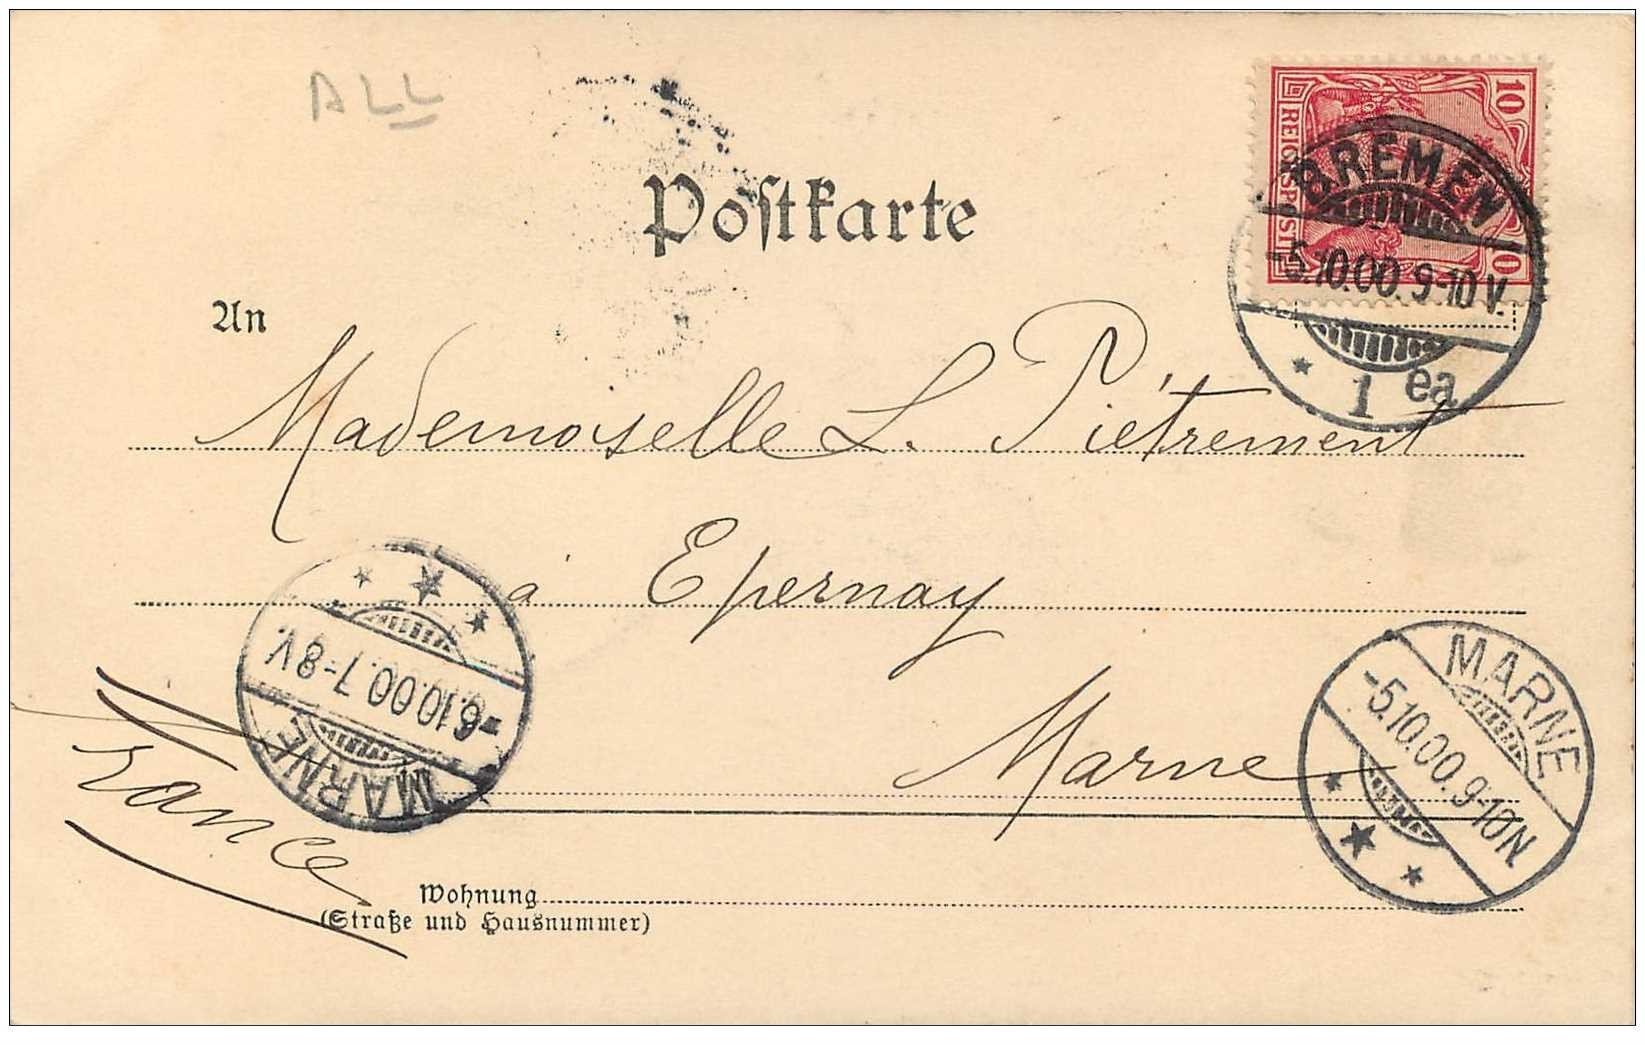 ALL
10
REICHSPOST
10
BREMEN
-5.10.00.9-10V.
* 1 ea
Postkarte
An
Mademoiselle L. Piétrement
à Epernay
Marne
MARNE
-5.10.00.9-10N
MARNE
-6.10.00.7-8V.
France
Wohnung
(Straße und Hausnummer)